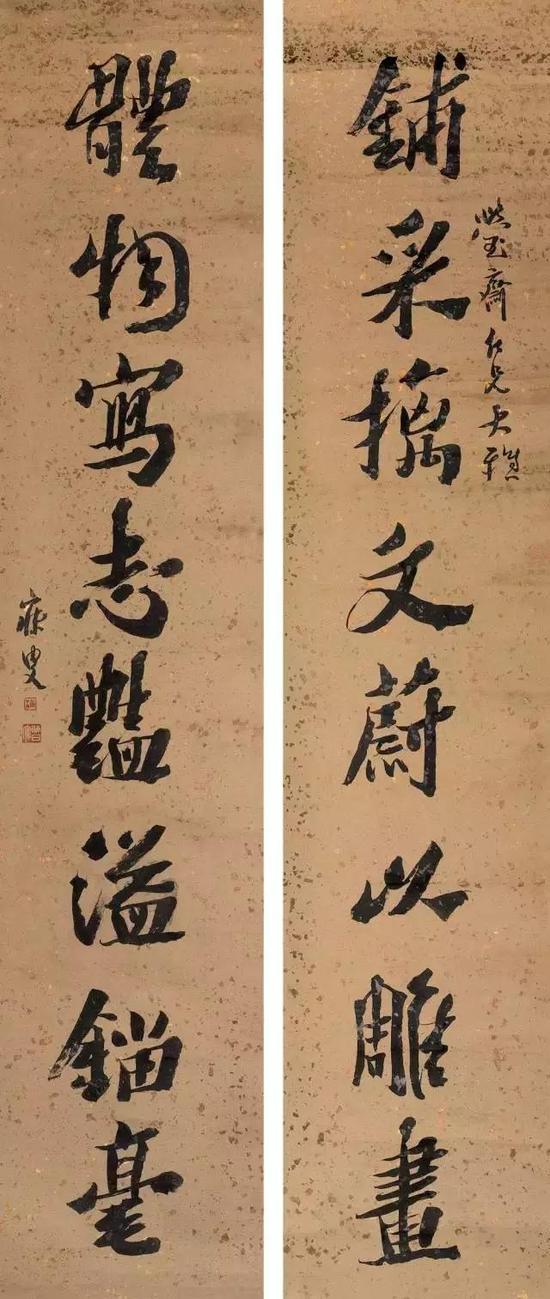 鋪采摛文蔚以雕畫
瑩齋仁兄大雅
體物寫志豔溢錙毫
寐叟